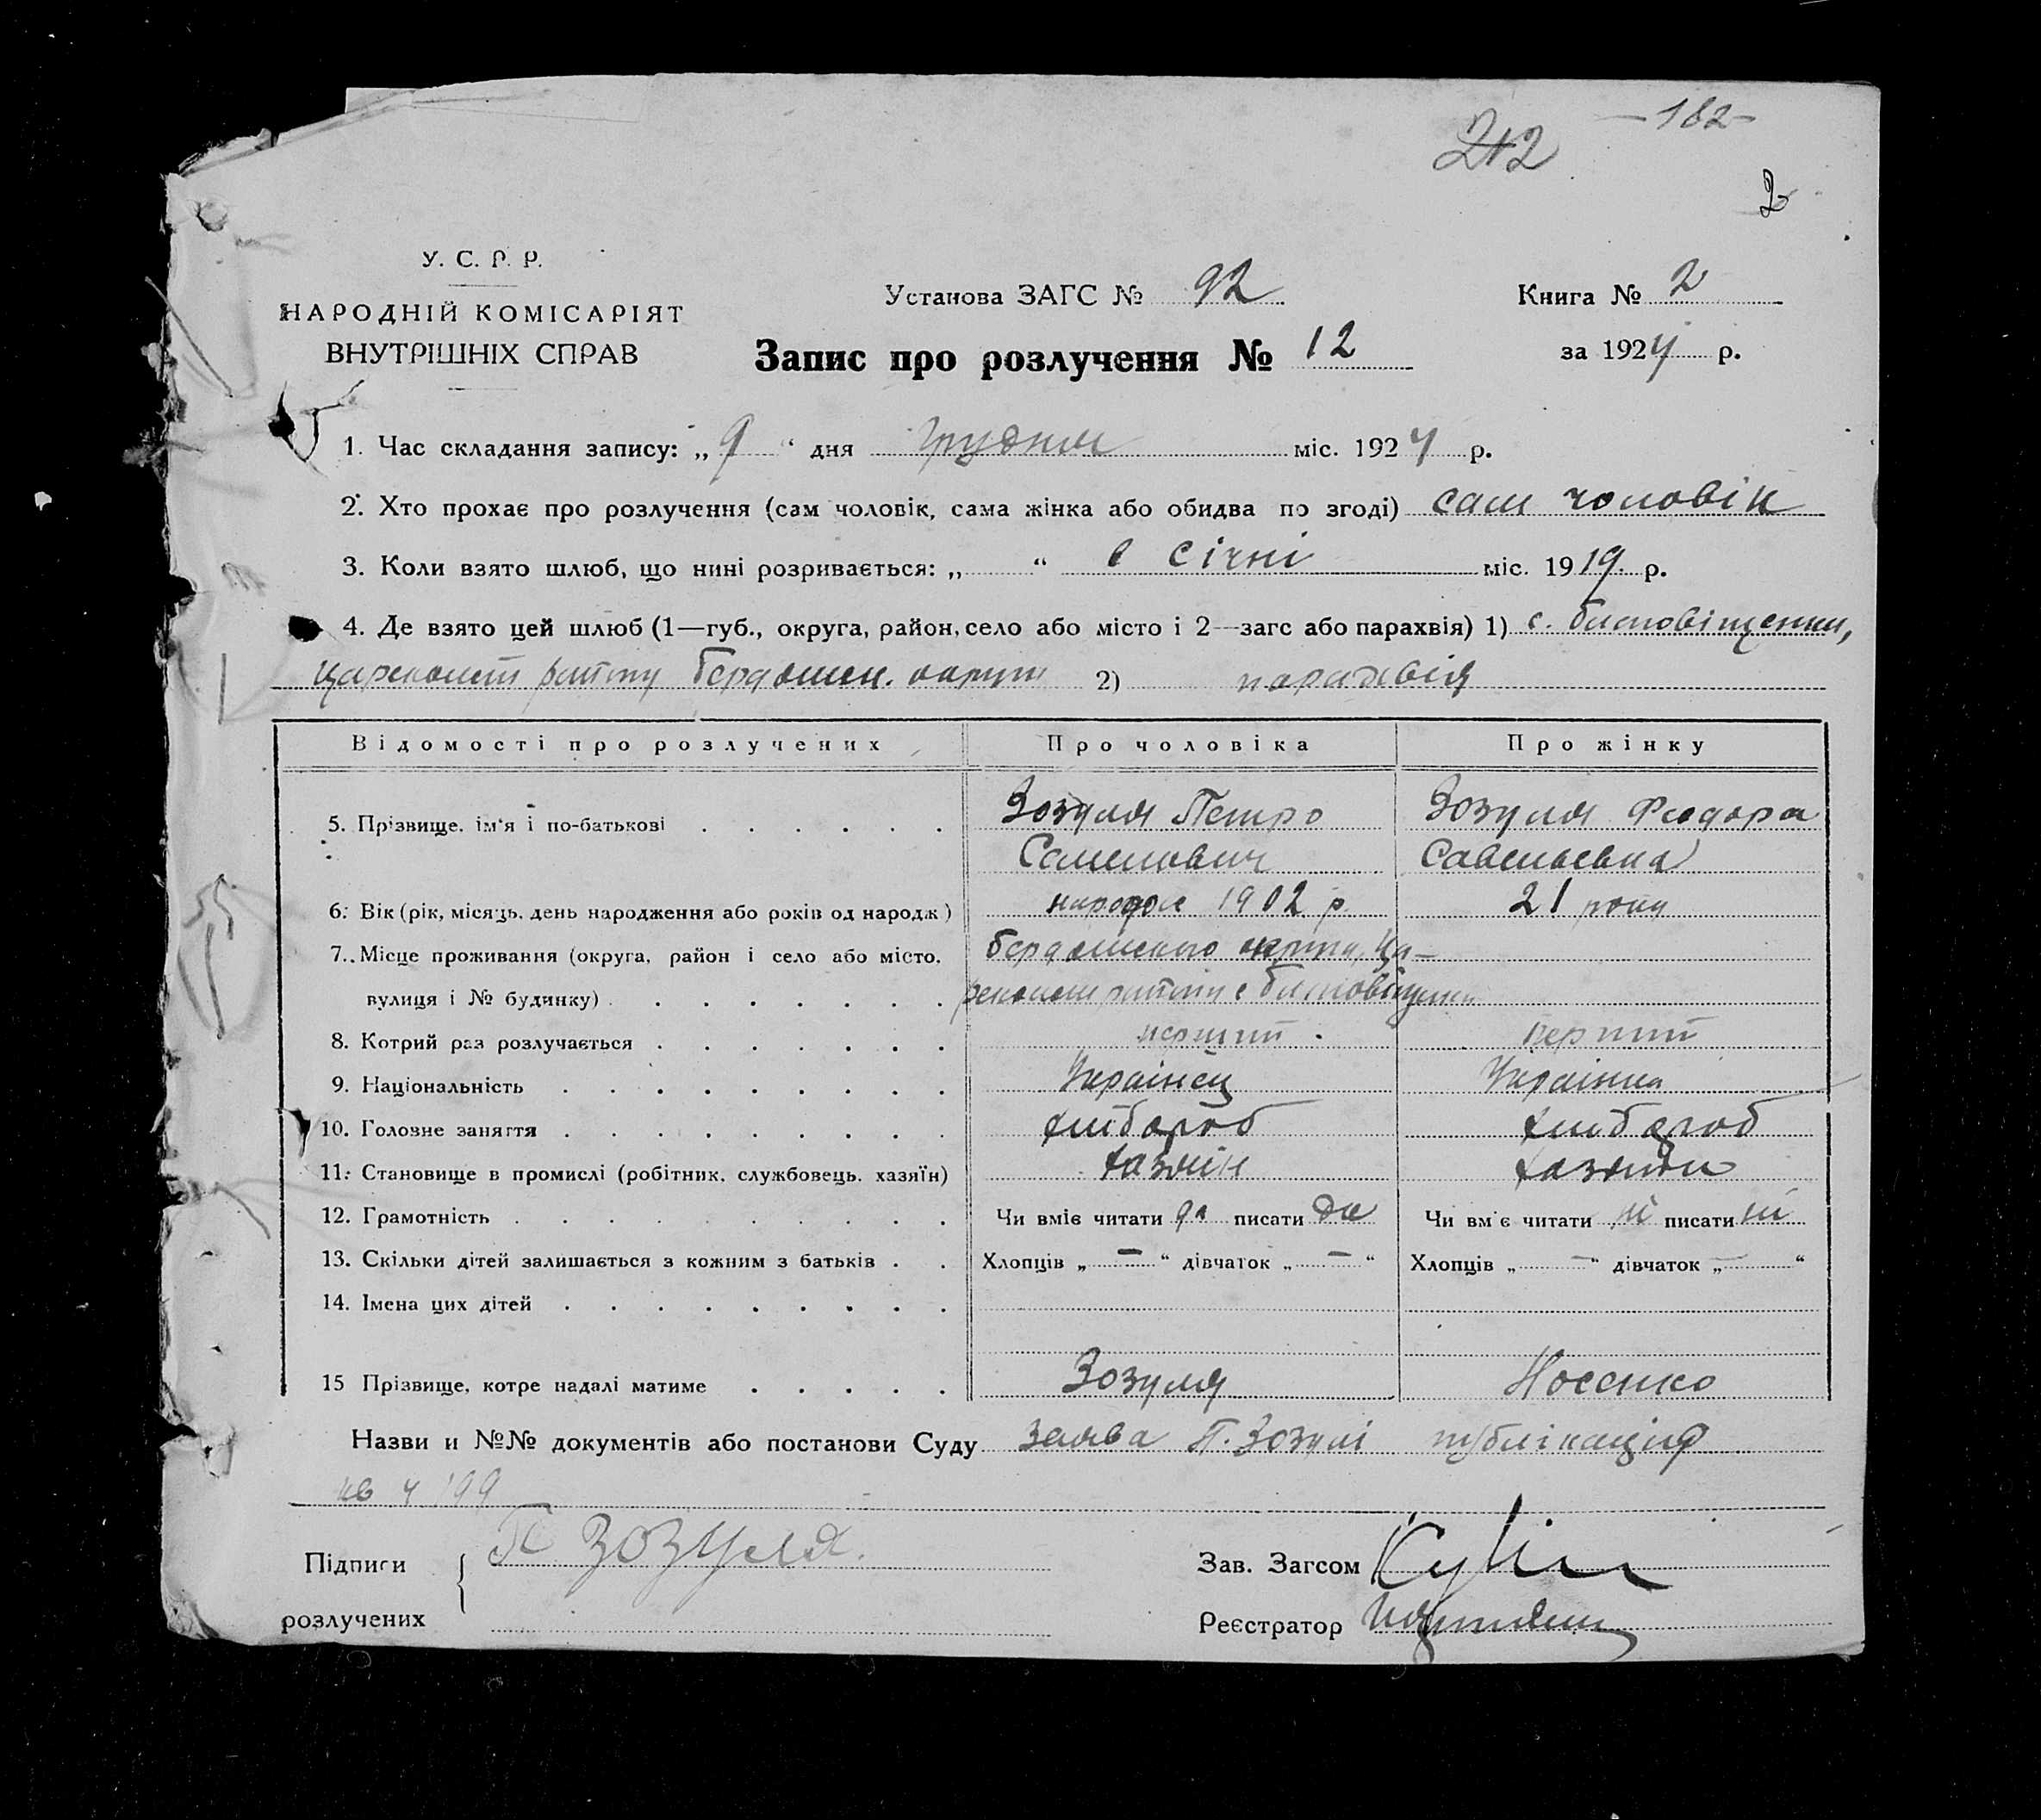 212 -182-
2
У. С. Р. Р.
НАРОДНІЙ КОМІСАРІЯТ
ВНУТРІШНІХ СПРАВ
Установа ЗАГС № 92
Книга № 2
Запис про розлучення № 12
за 1924 р.
1. Час складання запису: „ 9 “ дня грудня міс. 1924 р.
2. Хто прохає про розлучення (сам чоловік, сама жінка або обидва по згоді) сам чоловік
3. Коли взято шлюб, що нині розривається: „ “ в січні міс. 1919 р.
4. Де взято цей шлюб (1—губ., округа, район, село або місто і 2—загс або парахвія) 1) с. Благовіщенки,
Цареконст району Бердянськ. округи 2) парахвія
Відомості про розлучених Про чоловіка Про жінку
5. Прізвище, ім'я і по-батькові Зозуля Петро Зозуля Феодора
Семенович Савельевна
6. Вік (рік, місяць, день народження або років од народж) народж 1902 р. 21 року
7. Місце проживання (округа, район і село або місто, Бердянського округи, Ца-
вулиця і № будинку) реконст району с Благовіщенки
8. Котрий раз розлучається перший перший
9. Національність Українец Українка
10. Головне заняття хлібороб хлібороб
11. Становище в промислі (робітник, службовець, хазяїн) хазяїн хазяйка
12. Грамотність Чи вміє читати да писати да Чи вміє читати ні писати ні
13. Скільки дітей залишається з кожним з батьків Хлопців „ — “ дівчаток „ — “ Хлопців „ — “ дівчаток „ — “
14. Імена цих дітей
15 Прізвище, котре надалі матиме Зозуля Носенко
Назви и №№ документів або постанови Суду Заява П. Зозулі публікація
кв 4 199
Підписи П Зозуля.
розлучених
Зав. Загсом
Реєстратор